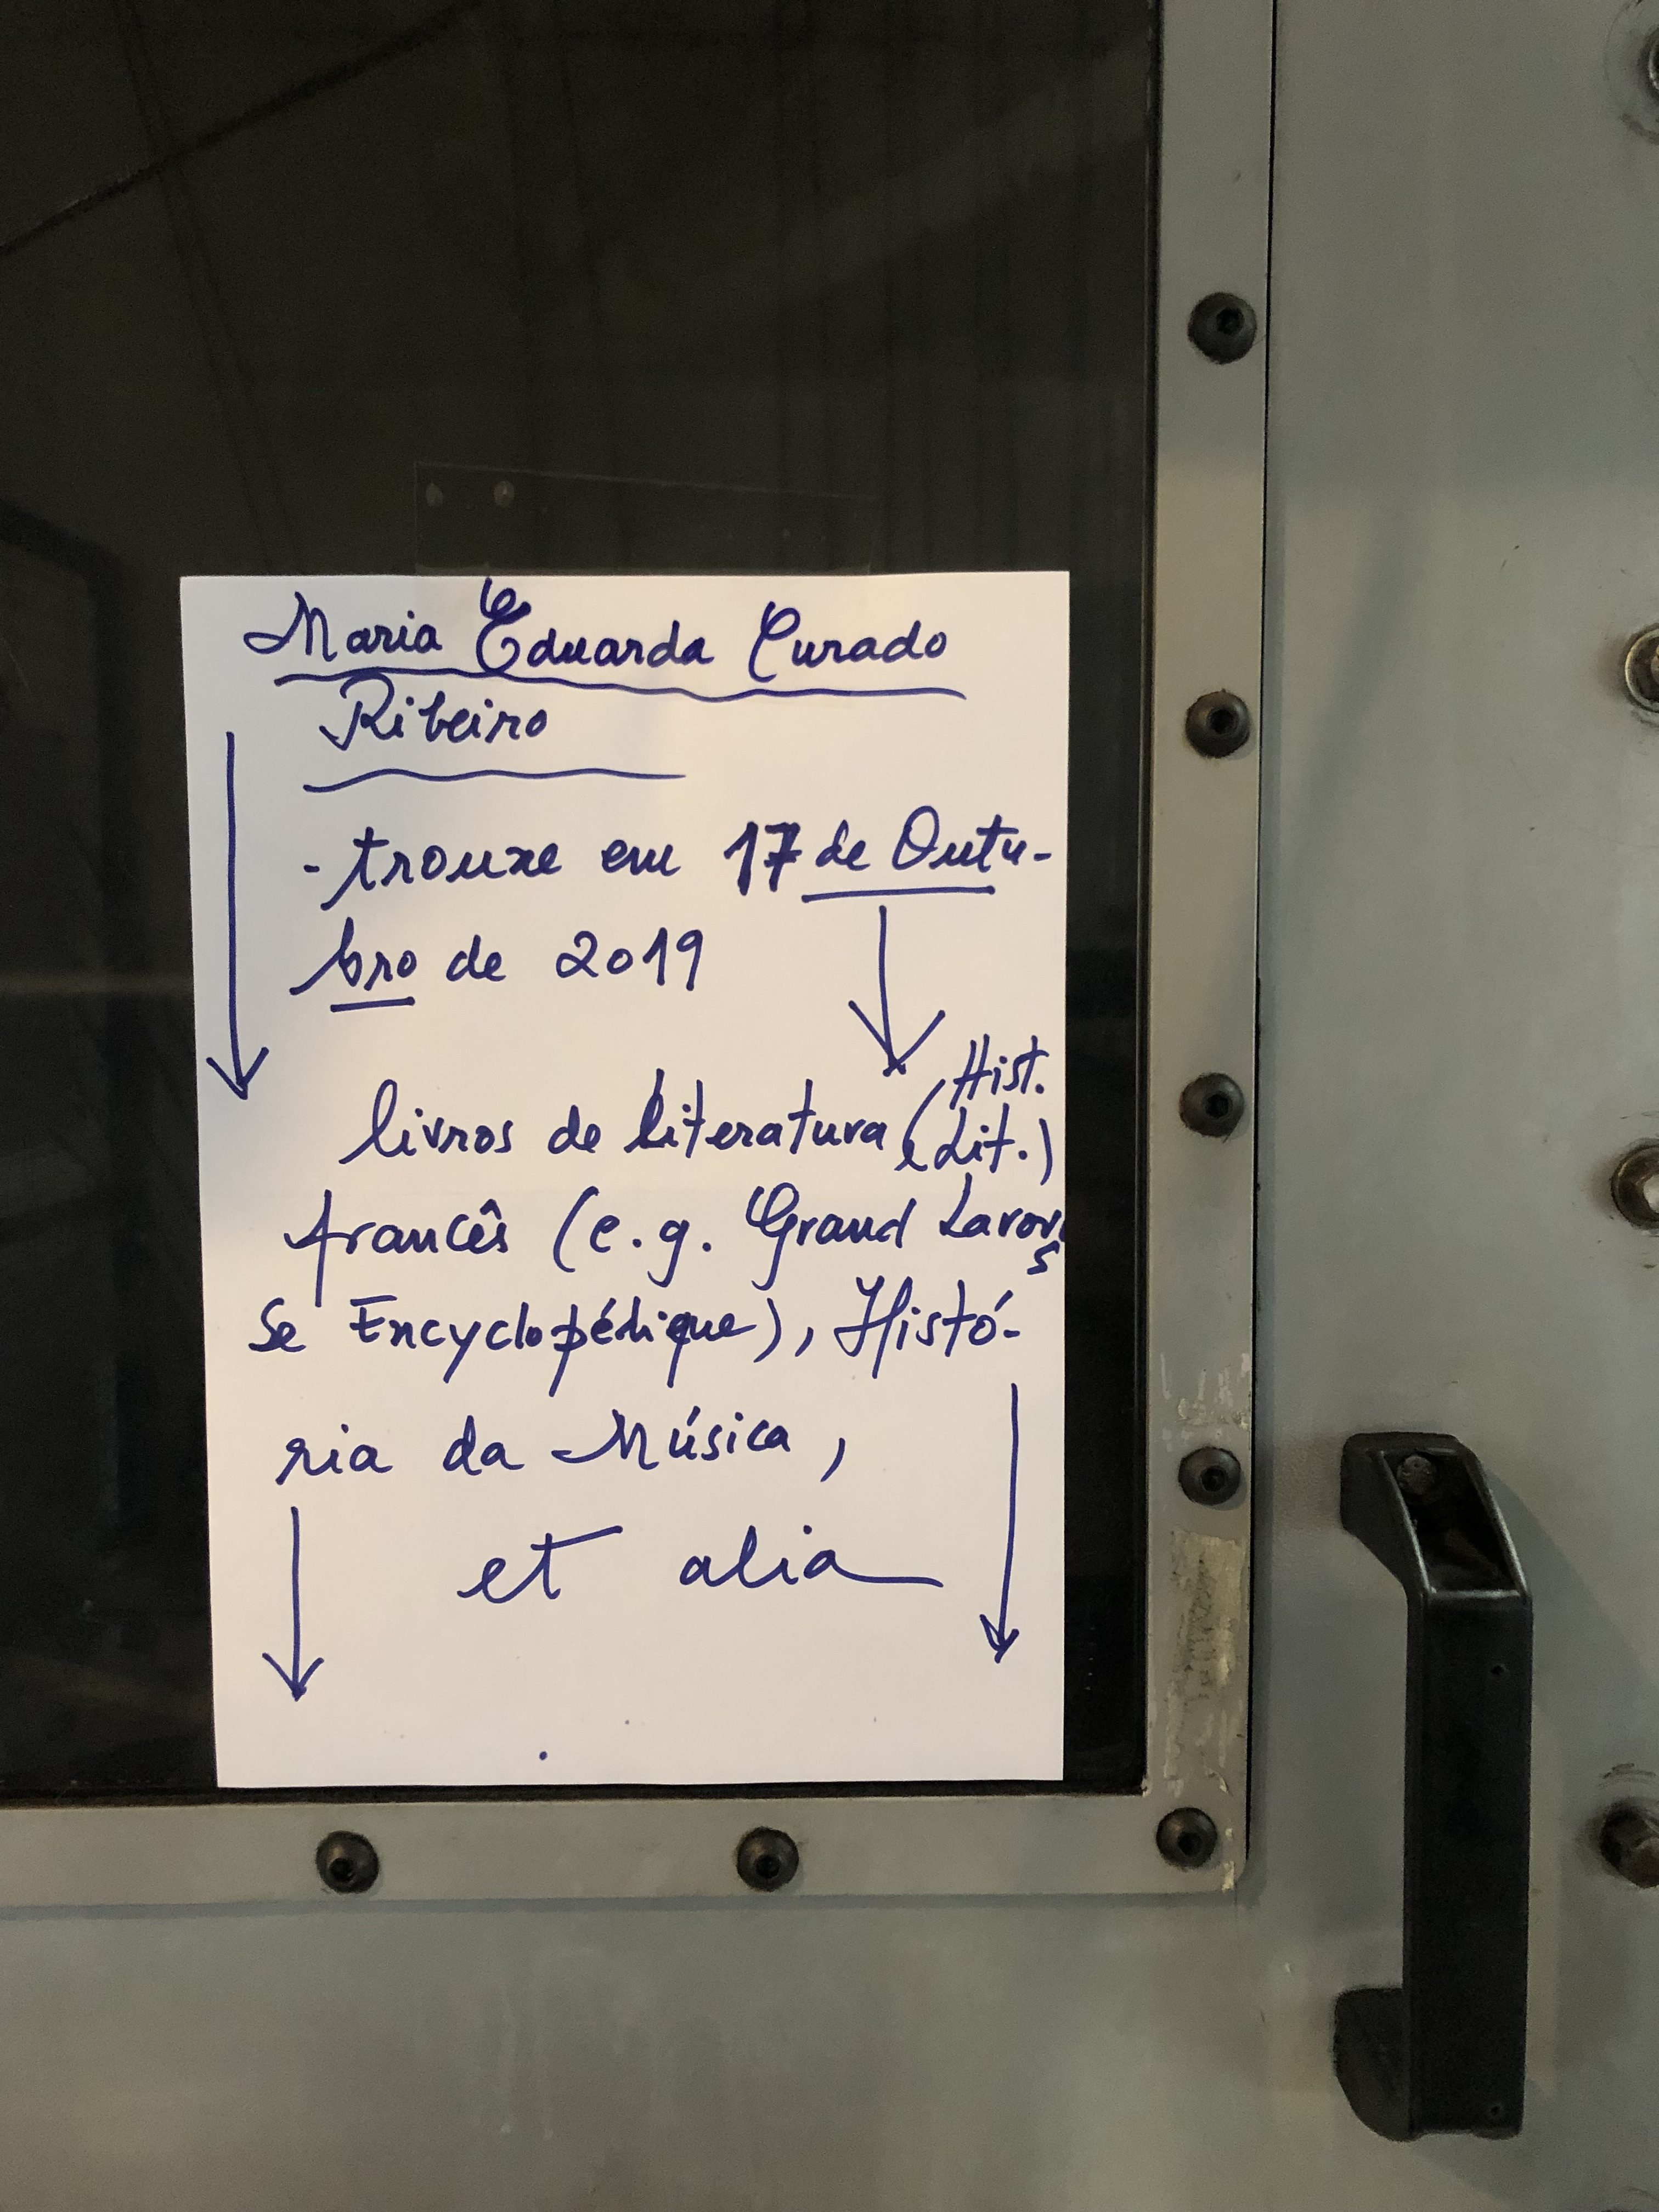 Maria Eduarda Curado
Ribeiro
- trouxe em 17 de Outu-
bro de 2019
livros de literatura (Hist.
e Lit.)
francês (e.g. Grand Larous
se Encyclopédique), Histó-
ria da Música,
et alia